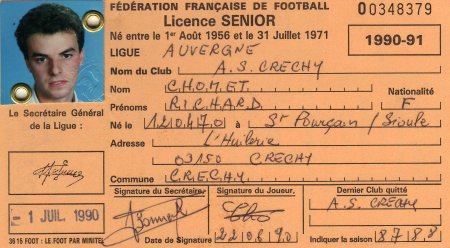 FÉDÉRATION FRANÇAISE DE FOOTBALL
00348379
Licence SENIOR
Né entre le 1er Août 1956 et le 31 Juillet 1971
1990-91
LIGUE AUVERGNE
Nom du Club A.S. CRECHY
Nom C.H.O.M.E.T.
Nationalité
Prénoms R.I.C.H.A.R.D F
Le Secrétaire Général
de la Ligue :
Né le 12.04.70 à St Pourçain / Sioule
Adresse L'Huilerie
03150 CRECHY
Commune C.R.E.C.H.Y.
Signature du Secrétaire
Signature du Joueur
Dernier Club quitté
A.S. CRECHY
- 1 JUIL. 1990
3615 FOOT : LE FOOT PAR MINITEL
Date de Signature 22.06.90
Indiquer la saison 87.88